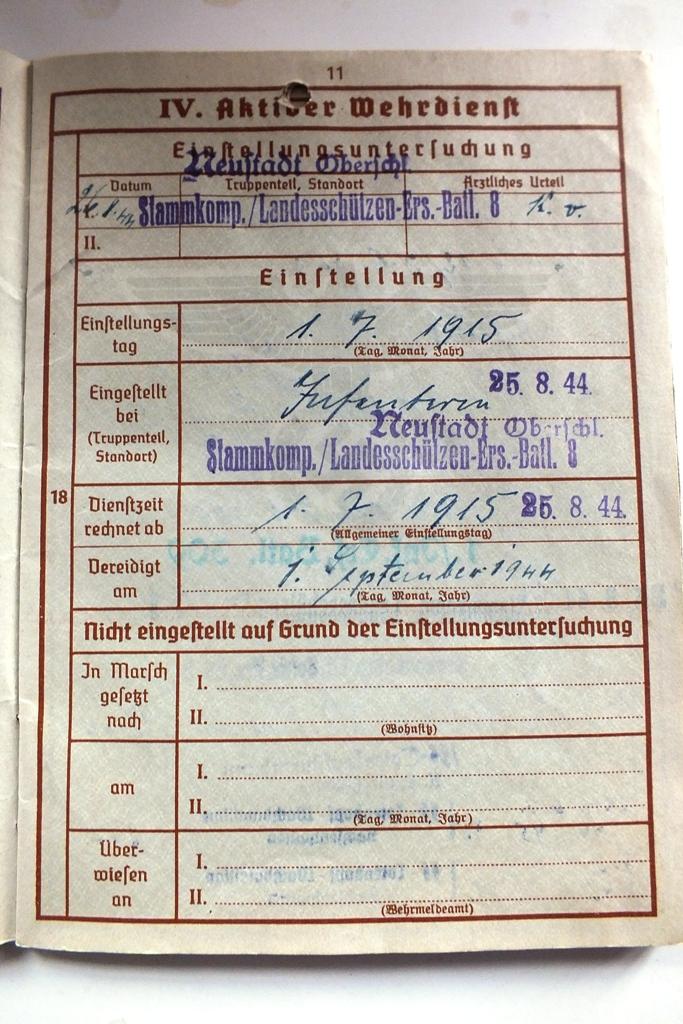 11
IV. Aktiver Wehrdienst
Einstellungsuntersuchung
Neustadt Oberschl.
Datum Truppenteil, Standort Ärztliches Urteil
Stammkomp./Landesschützen-Ers.-Batl. 8 k. v.
II.
Einstellung
Einstellungs-
tag
1. 7. 1915
(Tag, Monat, Jahr)
Eingestellt
bei
(Truppenteil,
Standort)
25. 8. 44.
Neustadt Oberschl.
Stammkomp./Landesschützen-Ers.-Batl. 8
18
Dienstzeit
rechnet ab
1. 7. 1915 25. 8. 44.
(Allgemeiner Einstellungstag)
Vereidigt
am
1. September 1944
(Tag, Monat, Jahr)
Nicht eingestellt auf Grund der Einstellungsuntersuchung
In Marsch
gesetzt
nach
I.
II.
(Wohnsitz)
am
I.
II.
(Tag, Monat, Jahr)
Über-
wiesen
an
I.
II.
(Wehrmeldeamt)